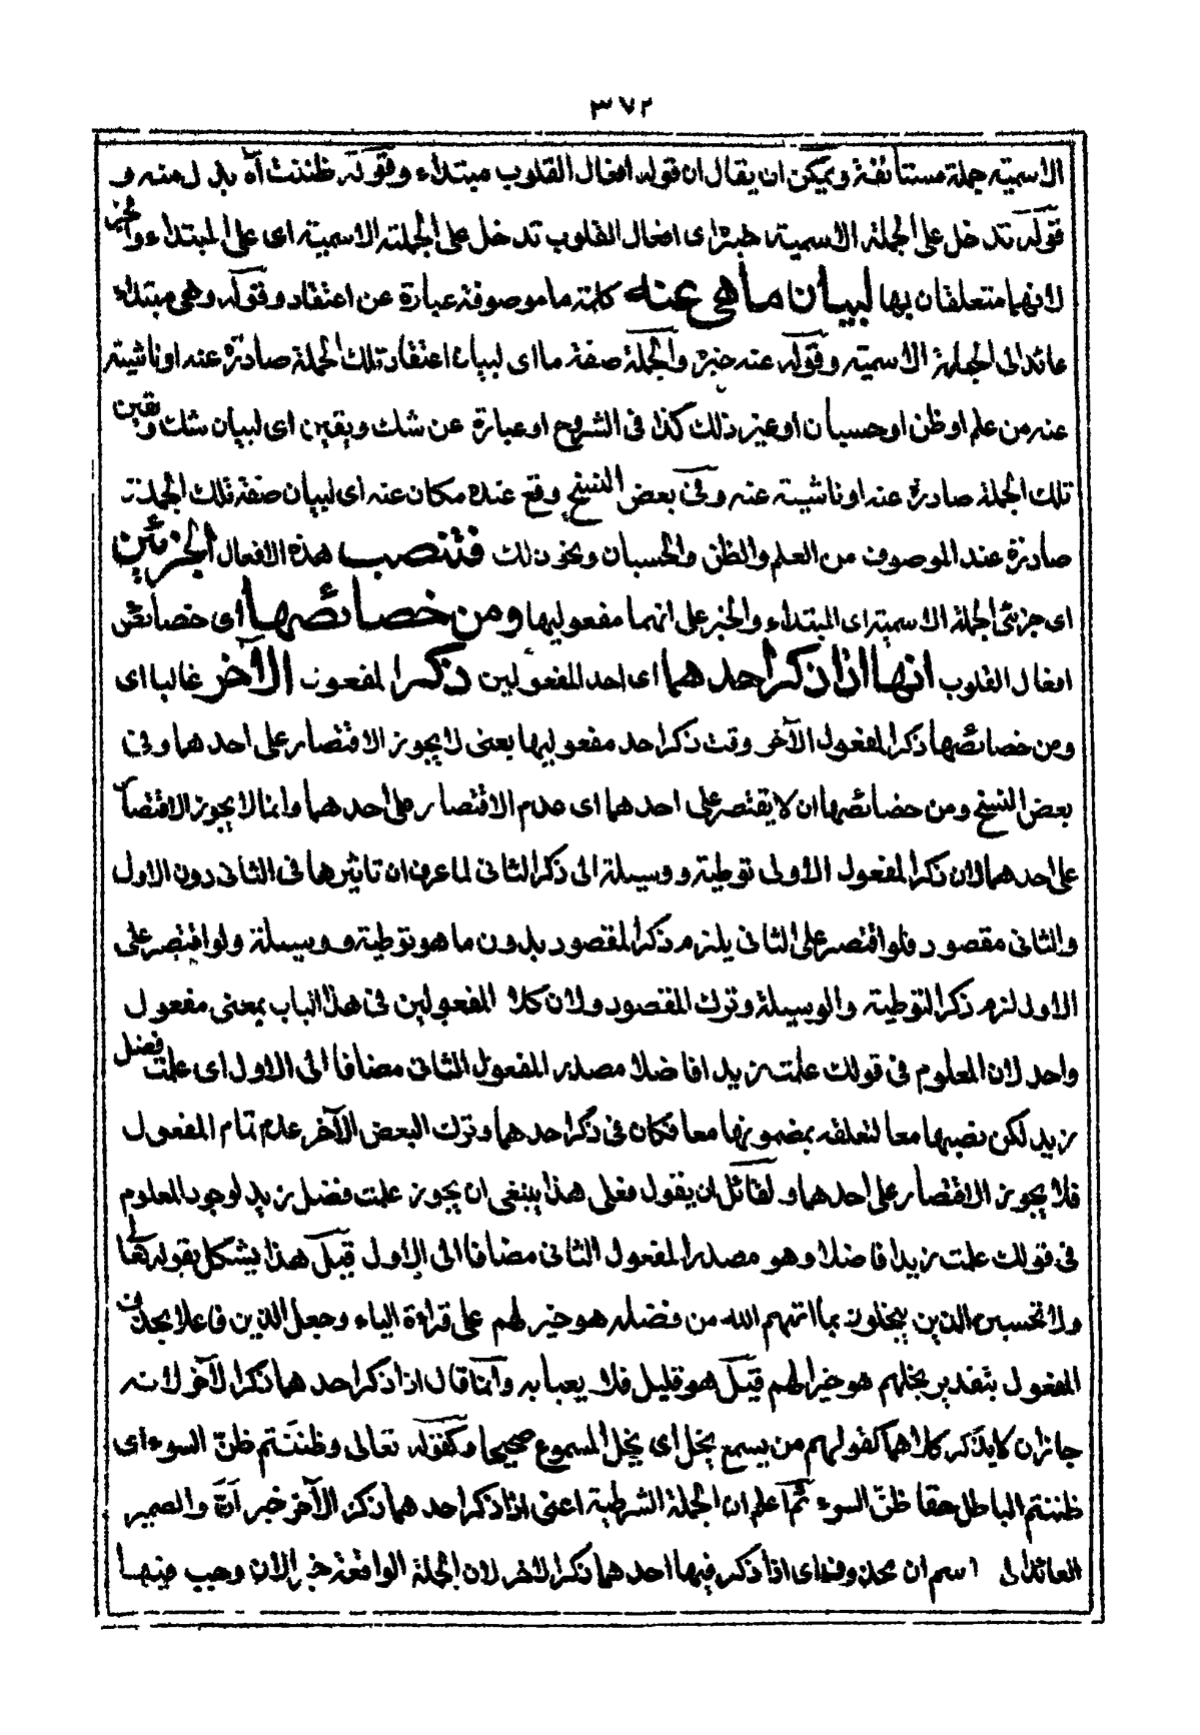 ٣٧٢
الاسمية جملة مستأنفة ويمكن ان يقال ان قوله افعال القلوب مبتداء وقوله ظننت آه بدل منه و
قوله تدخل على الجملة الاسمية خبره اى افعال القلوب تدخل على الجملة الاسمية اى على المبتداء والخبر
لانهما متعلقان بها لبيان ما هى عنه كلمة ما موصوفة عبارة عن اعتقاد وقوله وهى مبتداء
عائد الى الجملة الاسمية وقوله عنه خبره والجملة صفة ما اى لبيان اعتقاد تلك الجملة صادرة عنه او ناشية
عنه من علم او ظن او حسبان او غير ذلك كذا فى الشروح او عبارة عن شك ويقين اى لبيان شك ويقين
تلك الجملة صادرة عنه او ناشية عنه وفى بعض النسخ وقع عنده مكان عنه اى لبيان صفة تلك الجملة
صادرة عند الموصوف من العلم والظن والحسبان ونحو ذلك فتنصب هذه الافعال الجزئين
اى جزئى الجملة الاسمية اى المبتداء والخبر على انهما مفعوليها ومن خصائصها اى خصائص
افعال القلوب انها اذا ذكر احدهما اى احد المفعولين ذكر المفعول الآخر غالبا اى
ومن خصائصها ذكر المفعول الآخر وقت ذكر احد مفعوليها يعنى لا يجوز الاقتصار على احدهما وفى
بعض النسخ ومن خصائصها ان لا يقتصر على احدهما اى عدم الاقتصار على احدهما وانما لا يجوز الاقتصار
على احدهما لان ذكر المفعول الاول توطية ووسيلة الى ذكر الثانى لما عرف ان تاثيرها فى الثانى دون الاول
والثانى مقصود فلو اقتصر على الثانى يلزم ذكر المقصود بدون ما هو توطية ووسيلة ولو اقتصر على
الاول لزم ذكر التوطية والوسيلة وترك المقصود ولان كلا المفعولين فى هذا الباب بمعنى مفعول
واحد لان المعلوم فى قولك علمت زيدا فاضلا مصدر المفعول الثانى مضافا الى الاول اى علمت فضل
زيد لكن نصبهما معا لتعلقه بمضمونهما معا فكان فى ذكر احدهما وترك البعض الآخر عدم تمام المفعول
فلا يجوز الاقتصار على احدهما ولقائل ان يقول فعلى هذا ينبغى ان يجوز علمت فضل زيد لوجود المعلوم
فى قولك علمت زيدا فاضلا وهو مصدر المفعول الثانى مضافا الى الاول قيل هذا يشكل بقوله تعالى
ولا تحسبن الذين يبخلون بما اتهم الله من فضله هو خير لهم على قراءة الياء وجعل الذين فاعلا بحذف
المفعول بتقدير بخلهم هو خيرا لهم قيل هو قليل فلا يعبا به وانما قال اذا ذكر احدهما ذكر الآخر لانه
جاز ان لا يذكر كلاهما كقولهم من يسمع يخل اى يخل المسموع صحيحا وكقوله تعالى وظننتم ظن السوء اى
ظننتم الباطل حقا ظن السوء ثم اعلم ان الجملة الشرطية اعنى اذا ذكر احدهما ذكر الآخر خبر ان والضمير
العائد الى اسم ان محذوف اى اذا ذكر فيها احدهما ذكر الاخر لان الجملة الواقعة خبر الان وجب فيها